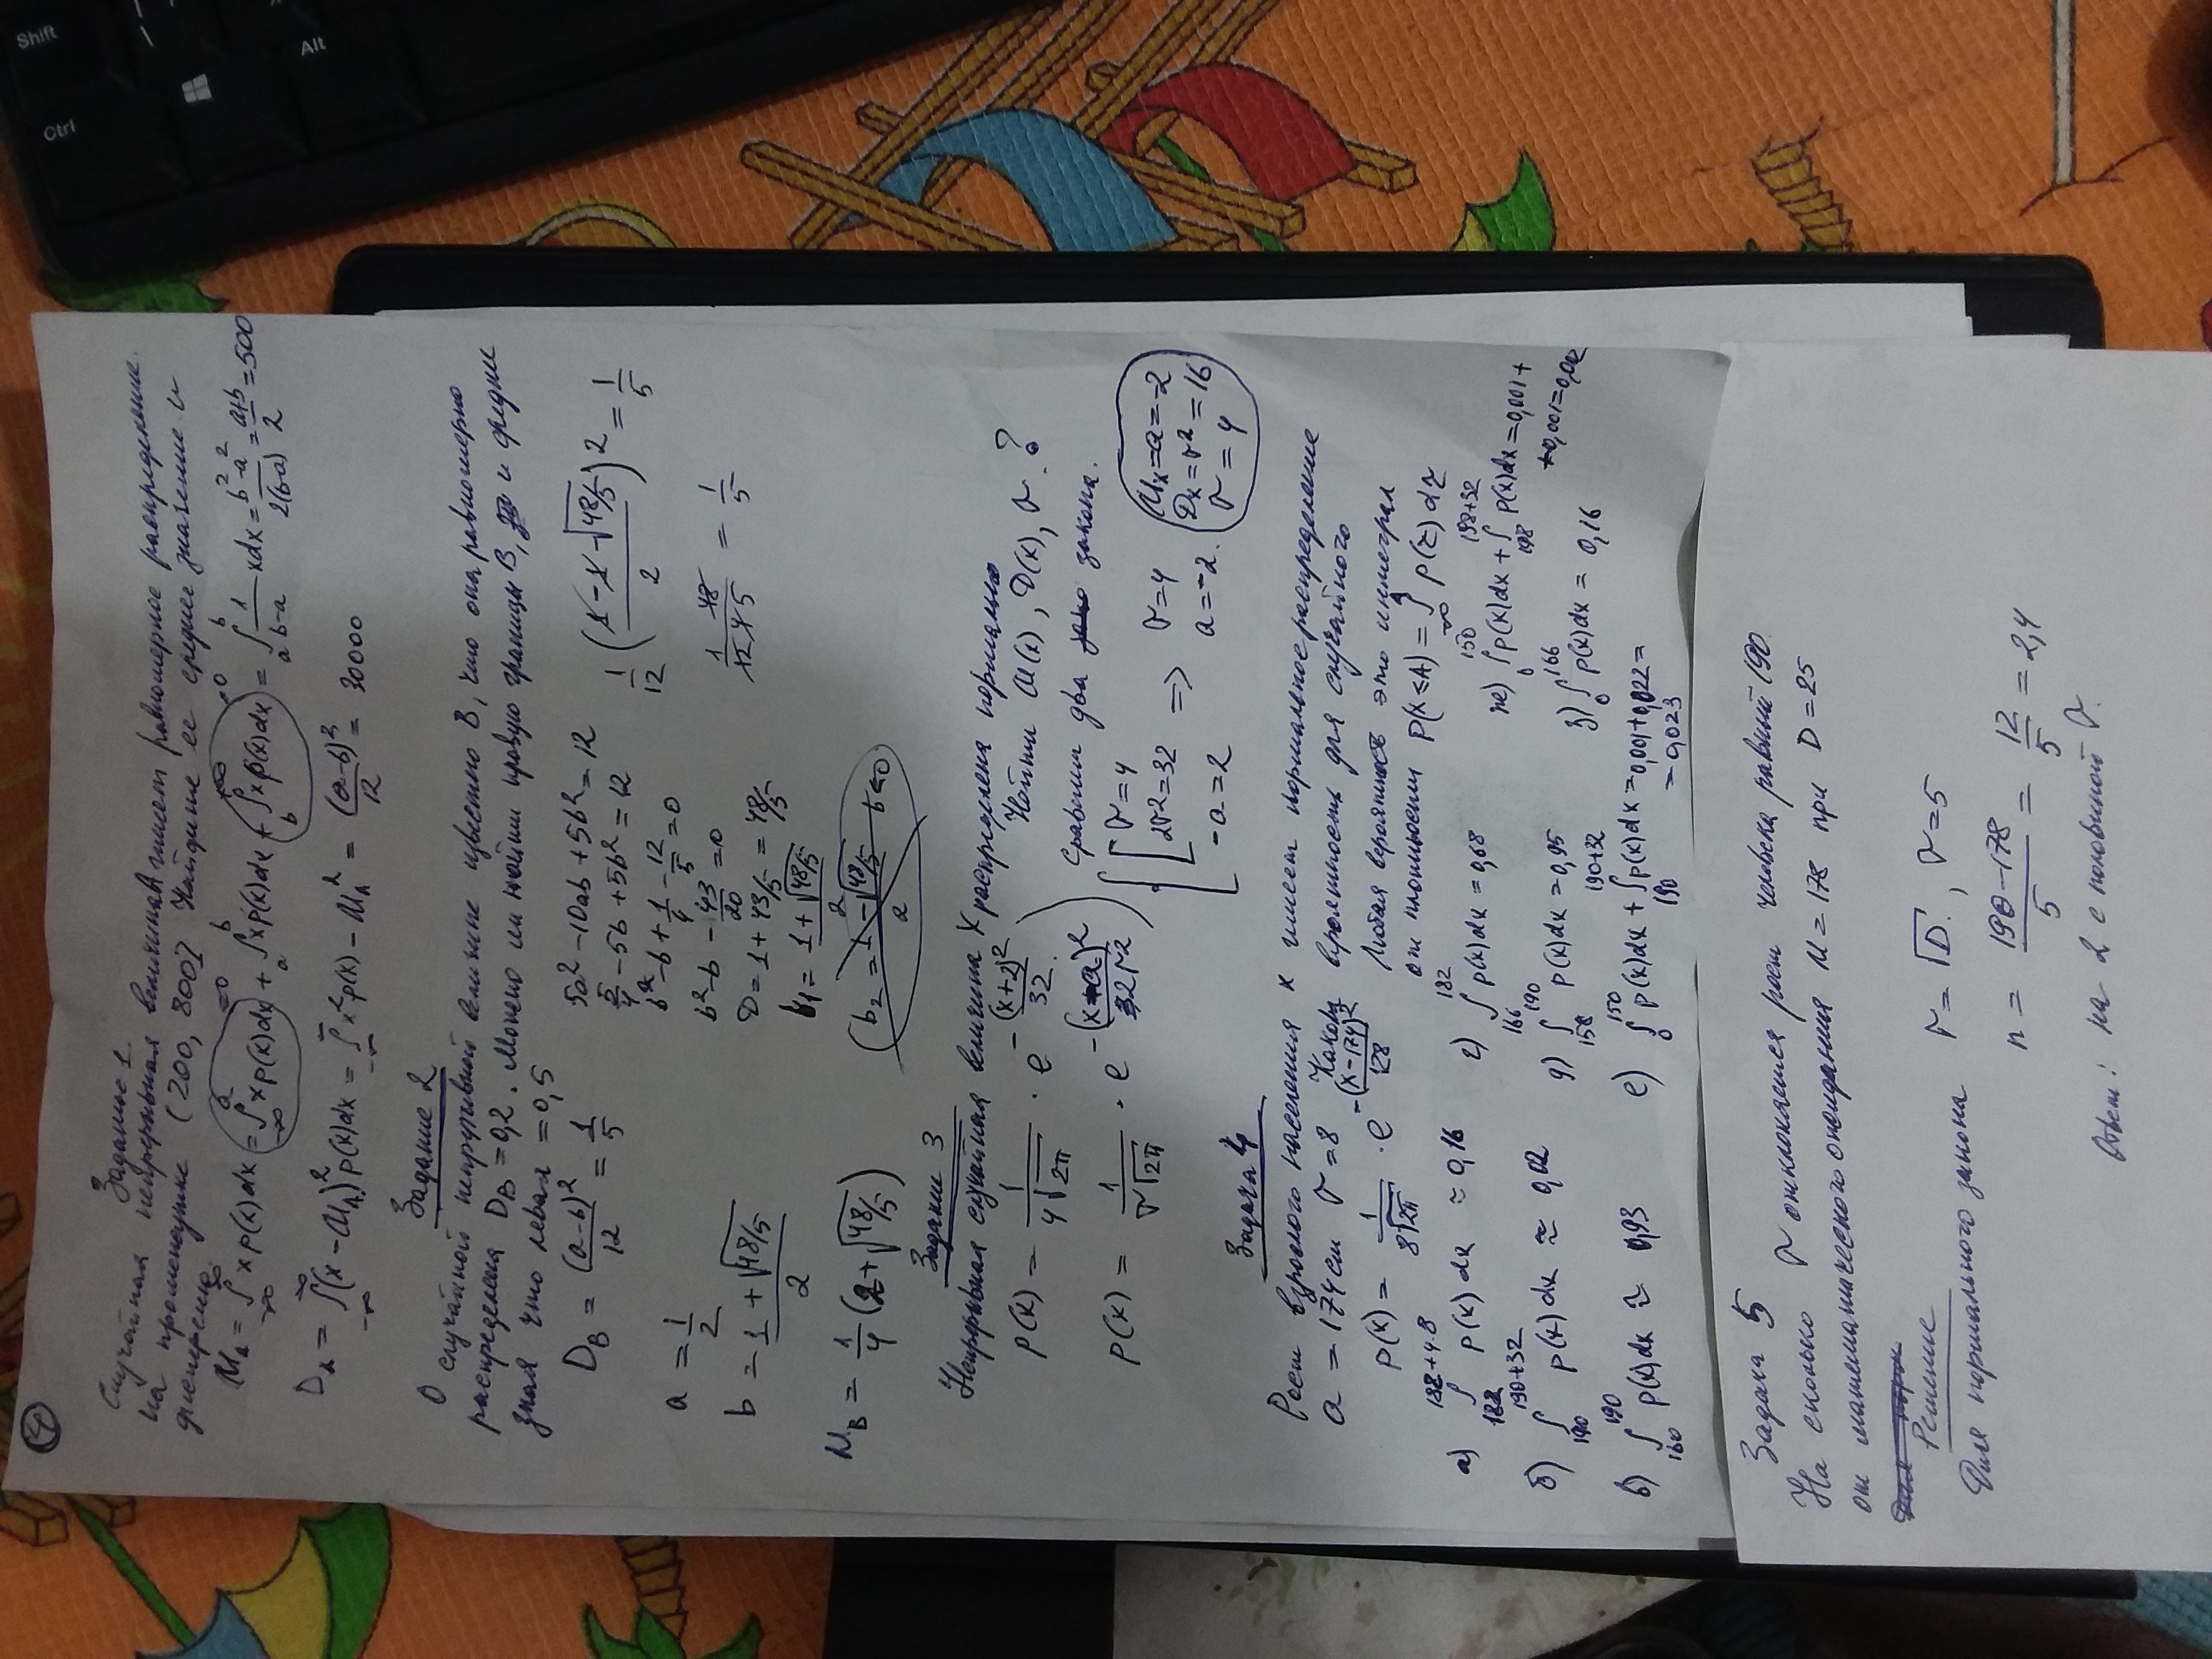 4
Задание 1.
Случайная непрерывная величина A имеет равномерное распределение
на промежутке (200, 800] Найдите ее среднее значение и
дисперсию.
M_A = ∫_{-∞}^{∞} x p(x) dx = ∫_{-∞}^{a} x p(x) dx + ∫_{a}^{b} x p(x) dx + ∫_{b}^{+∞} x p(x) dx = ∫_{a}^{b} 1/(b-a) x dx = (b²-a²)/(2(b-a)) = (a+b)/2 = 500
=0 =0
D_A = ∫_{-∞}^{∞} (x - M_A)² p(x) dx = ∫_{-∞}^{∞} x² p(x) - M_A² = (a-b)²/12 = 30000
Задание 2
О случайной непрерывной величине известно B, что она равномерно
распределена D_B = 0,2. Можно ли найти правую границы B, и средние
зная что левая = 0,5
D_B = (a-b)²/12 = 1/5
a = 1/2
b = (1 + √(48/5))/2
M_B = 1/4 (2 + √(48/5))
5a² - 10ab + 5b² = 12
5/4 - 5b + 5b² = 12
b² - b + 1/4 - 12/5 = 0
b² - b - 43/20 = 0
D = 1 + 43/5 = 48/5
b1 = (1 + √(48/5))/2
b2 = (1 - √(48/5))/2 b<0
1/12 ((1 - 1 - √(48/5))/2)² = 1/5
1 48/12 4 5 = 1/5
Задание 3
Непрерывная случайная величина X распределена нормально
p(x) = 1/(4√(2π)) · e^{-(x+2)²/32}
Найти M(x), D(x), σ ?
p(x) = 1/(σ√(2π)) · e^{-(x-a)²/2σ²}
Сравним два закона.
σ = 4
2σ² = 32
-a = 2
=> σ = 4
a = -2.
Mx = a = -2
Dx = σ² = 16
σ = 4
Задача 4
Рост взрослого населения x имеет нормальное распределение
a = 174 cm σ = 8 Какова вероятность для случайного
p(x) = 1/(8√(2π)) · e^{-(x-174)²/128}
Любая вероятность это интеграл
от плотности P(X ≤ A) = ∫_{∞}^{A} p(τ) dτ
а) ∫_{182}^{182+4·8} p(x) dx ≈ 0,16
б) ∫_{190}^{190+32} p(x) dx ≈ 0,02
в) ∫_{160}^{190} p(x) dx ≈ 0,93
г) ∫_{166}^{182} p(x) dx = 0,68
д) ∫_{158}^{190} p(x) dx = 0,95
е) ∫_{0}^{150} p(x) dx + ∫_{190}^{190+32} p(x) dx = 0,001 + 0,022 =
= 0,023
же) ∫_{0}^{150} p(x) dx + ∫_{198}^{198+32} p(x) dx = 0,001 +
+ 0,001 = 0,002
з) ∫_{0}^{166} p(x) dx = 0,16
Задача 5
На сколько σ отклоняется рост человека равный 190
от математического ожидания M = 178 при D = 25
Решение
Для нормального закона σ = √D. , σ = 5
n = (190-178)/5 = 12/5 = 2,4
Ответ: на 2 с половиной σ.
Ctrl
Shift
Alt